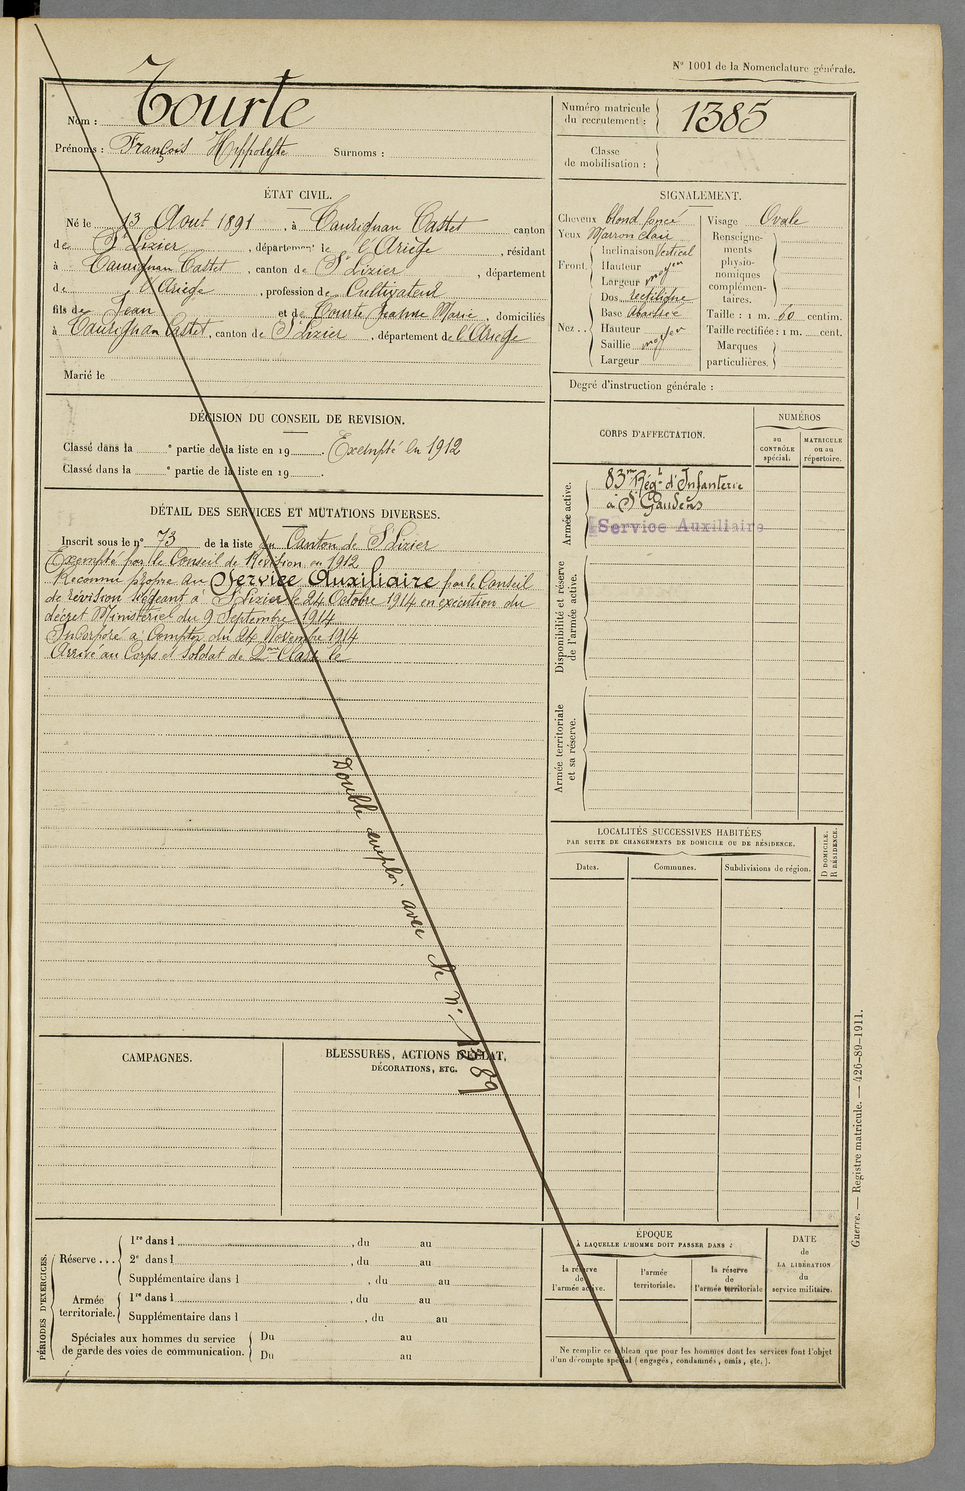 N° 1001 de la Nomenclature générale.
Nom : Tourte
Prénoms : François Hyppolyte Surnoms :
Numéro matricule du recrutement : 1385
Classe de mobilisation :
ÉTAT CIVIL.
Né le 13 Aout 1891, à Taurignan Castet canton
de St Lizier, département de l'Ariège, résidant
à Taurignan Castet, canton de St Lizier, département
de l'Ariège, profession de Cultivateur
fils de Jean et de Tourte Jeanne Marie, domiciliés
à Taurignan Castet, canton de St Lizier, département de l'Ariège
Marié le
SIGNALEMENT.
Cheveux blond foncé
Yeux Marron clair
Front. Inclinaison Vertical
Hauteur moyen
Largeur
Nez.. Dos rectiligne
Base Abaissée
Hauteur moyen
Saillie
Largeur
Visage Ovale
Renseignements physionomiques complémentaires.
Taille : 1 m. 60 centim.
Taille rectifiée : 1 m. cent.
Marques particulières.
Degré d'instruction générale :
DÉCISION DU CONSEIL DE REVISION.
Classé dans la e partie de la liste en 19 . Exempté en 1912
Classé dans la e partie de la liste en 19 .
DÉTAIL DES SERVICES ET MUTATIONS DIVERSES.
Inscrit sous le n° 73 de la liste du Canton de St Lizier
Exempté par le Conseil de Révision en 1912
Reconnu propre au Service Auxiliaire par le Conseil
de révision siégeant à St Lizier le 24 Octobre 1914 en exécution du
décret Ministériel du 9 Septembre 1914
Incorporé à Compter du 24 Novembre 1914
Arrivé au Corps et Soldat de 2me Classe le
Double emploi avec le N° 1389
CORPS D'AFFECTATION.
NUMÉROS
au CONTRÔLE spécial.
MATRICULE ou au répertoire.
Armée active.
83me Régt d'Infanterie
à St Gaudens
Service Auxiliaire
Disponibilité et réserve de l'armée active.
Armée territoriale et sa réserve.
LOCALITÉS SUCCESSIVES HABITÉES
PAR SUITE DE CHANGEMENTS DE DOMICILE OU DE RÉSIDENCE.
Dates. Communes. Subdivisions de région.
D DOMICILE.
R RÉSIDENCE.
CAMPAGNES.
BLESSURES, ACTIONS D'ÉCLAT,
DÉCORATIONS, ETC.
PÉRIODES D'EXERCICES.
Réserve...
1re dans l , du au
2e dans l , du au
Supplémentaire dans l , du au
Armée territoriale.
1re dans l , du au
Supplémentaire dans l , du au
Spéciales aux hommes du service
de garde des voies de communication.
Du au
Du au
ÉPOQUE
À LAQUELLE L'HOMME DOIT PASSER DANS :
la réserve de l'armée active.
l'armée territoriale.
la réserve de l'armée territoriale
DATE de LA LIBÉRATION du service militaire.
Ne remplir ce tableau que pour les hommes dont les services font l'objet
d'un décompte spécial (engagés, condamnés, omis, etc.).
Guerre. — Registre matricule. — 426-89-1911.